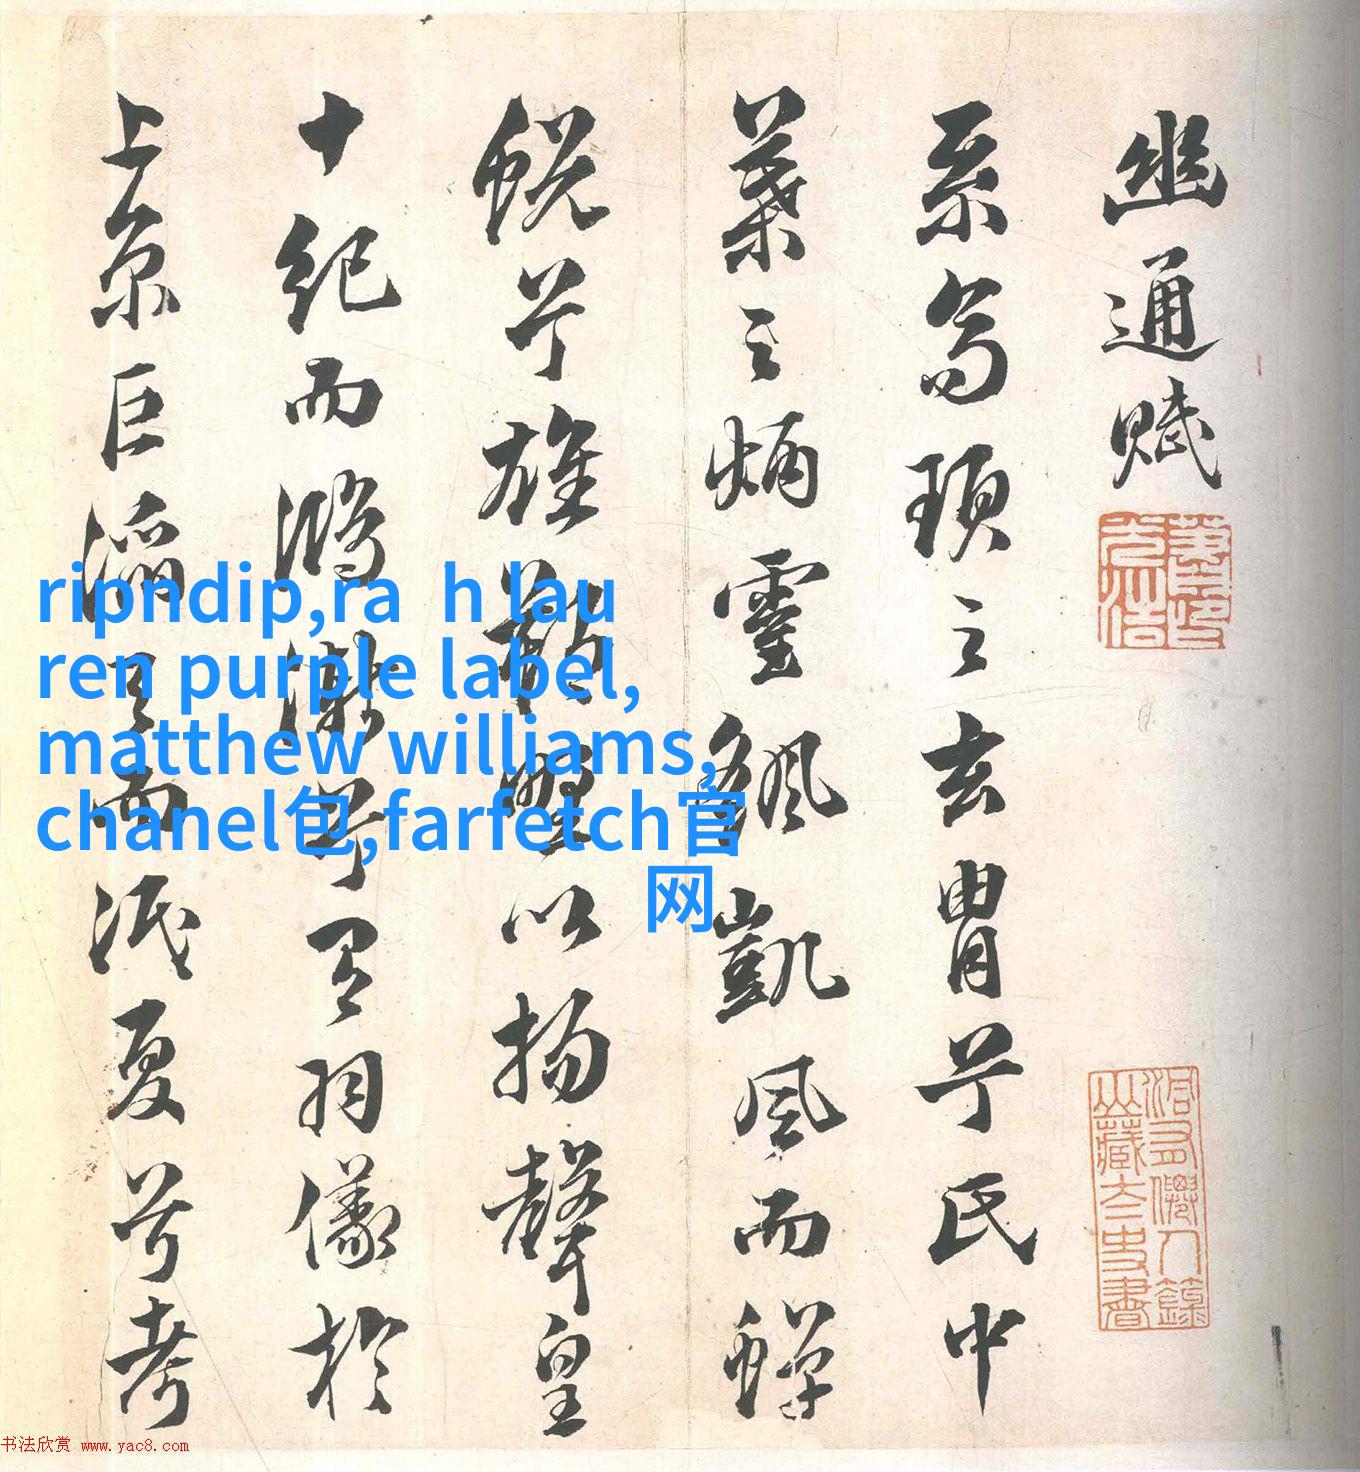 幽通賦
系高頊之玄胄兮氏中
葉之炳靈飖凱風而蟬
蛻兮雄朔野以揚聲皇
十紀而鴻漸兮有羽儀於
上京巨滔天而泯夏兮考
ripndip,ra h lau
ren purple label,
matthew williams,
chanel包,farfetch官
网
书法欣赏 www.yac8.com